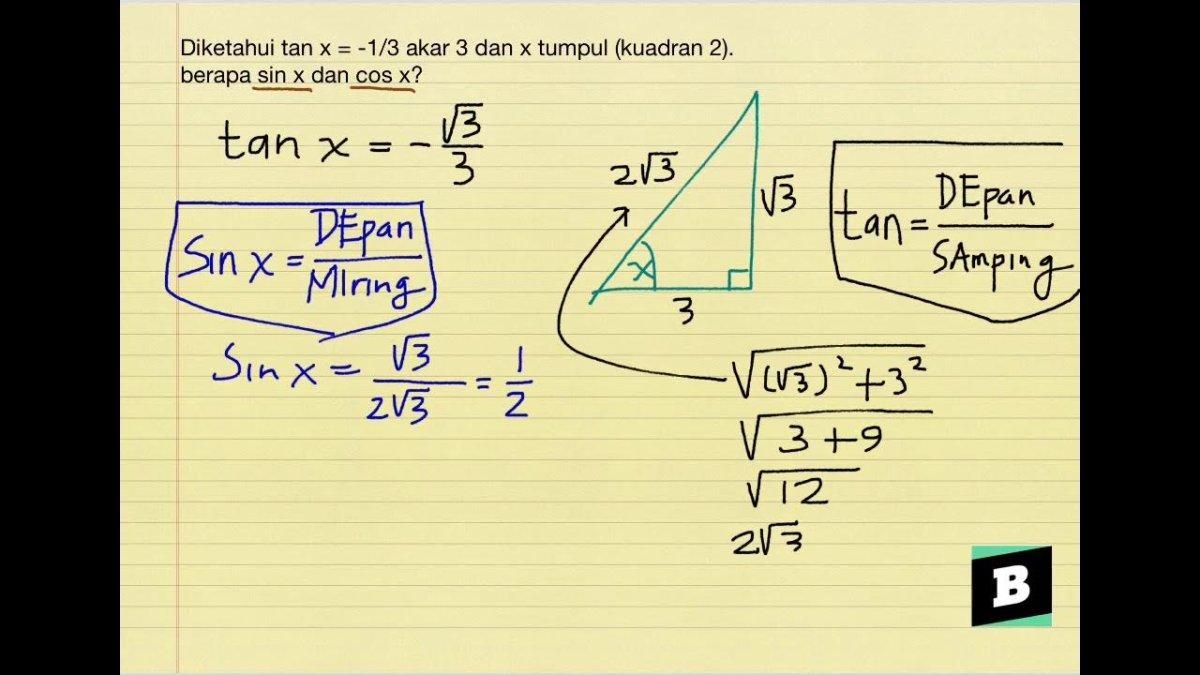 Diketahui tan x = -1/3 akar 3 dan x tumpul (kuadran 2).
berapa sin x dan cos x?
tan x = - √3/3
Sin x = DEpan/MIring
Sin x = √3/2√3 = 1/2
2√3
√3
x
3
tan = DEpan/SAmping
√(√3)² + 3²
√3 + 9
√12
2√3
B